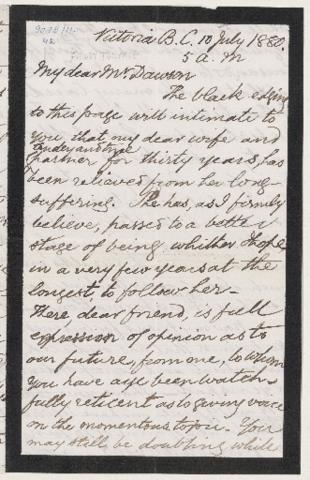 Victoria B.C. 10 July 1880.
5 a.m
My dear Mr Dawson
The black edging
to this page will intimate to
you that my dear wife and
tender and true
partner for thirty years, has
been relieved from her long
suffering. She has, as I firmly
believe, passed to a better
stage of being whither I hope
in a very few years at the
longest, to follow her-
There dear friend, is full
expression of opinion as to
our future, from one, to whom
you have aye been watch-
fully reticent as to giving voice
on the momentous topic. You
may still be doubting while